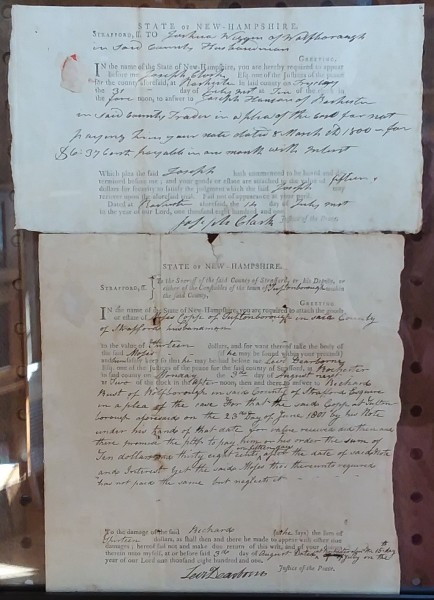 STATE OF NEW-HAMPSHIRE.
STRAFFORD, ss. TO Joshua Wiggin of Wolfborough
in said County Husbandman
GREETING.
IN the name of the State of New-Hampshire, you are hereby required to appear
before me Joseph Clark Esq. one of the Justices of the peace
for the county aforesaid, at Rochester on Friday
the 31 day of July next at Ten of the clock in
the fore noon, to answer to Joseph Hanson of Rochester
in said County Trader in a plea of the case for not
paying him your note dated 8 March 1800 for
$6:37 Cents payable in one month with Interest
Which plea the said Joseph hath commenced to be heard and
termined before me; and your goods or estate are attached to the value of fifteen
dollars for security to satisfy the judgment which the said Joseph may
recover upon the aforesaid plea. Fail not of appearance at your peril.
Dated at Rochester the day of July
in the year of our Lord, one thousand eight hundred and one
Joseph Clark Justice of the Peace.
STATE OF NEW-HAMPSHIRE.
STRAFFORD, ss. To the Sheriff of the said County of Strafford, or his Deputy, or
either of the Constables of the town of Tuftonborough within
the said County,
GREETING.
IN the name of the State of New-Hampshire, you are required to attach the goods
or estate of Moses Copp of Tuftonborough in said County
of Strafford husbandman
to the value of thirteen dollars, and for want thereof take the body of
the said Moses (if he may be found within your precinct)
and him safely keep so that he may be had before me Levi Dearborn
Esq. one of the Justices of the peace for the county of Strafford, at Rochester
in said county on Monday the 3rd day of August next
at Two of the clock in the after noon, then and there to answer to Richard
Rust of Wolfborough in said County of Strafford Esquire
in a plea of the case. For that the said Copp at
borough aforesaid on the 23rd day of June 1801 by his Note
under his hand of that date for value received did then and
there promise the plff to pay him or his order the sum of
Ten dollars and thirty eight cents, after the date of said Note
and Interest Yet the said Moses tho thereunto required
has not paid the same but neglects it
To the damage of the said Richard (as he says) the sum of
thirteen dollars, as shall then and there be made to appear with other due
damages; hereof fail not and make due return of this writ, and of your
therein unto myself, at or before said 3rd day of August Dated
year of our Lord one thousand eight hundred and one.
Levi Dearborn Justice of the Peace.